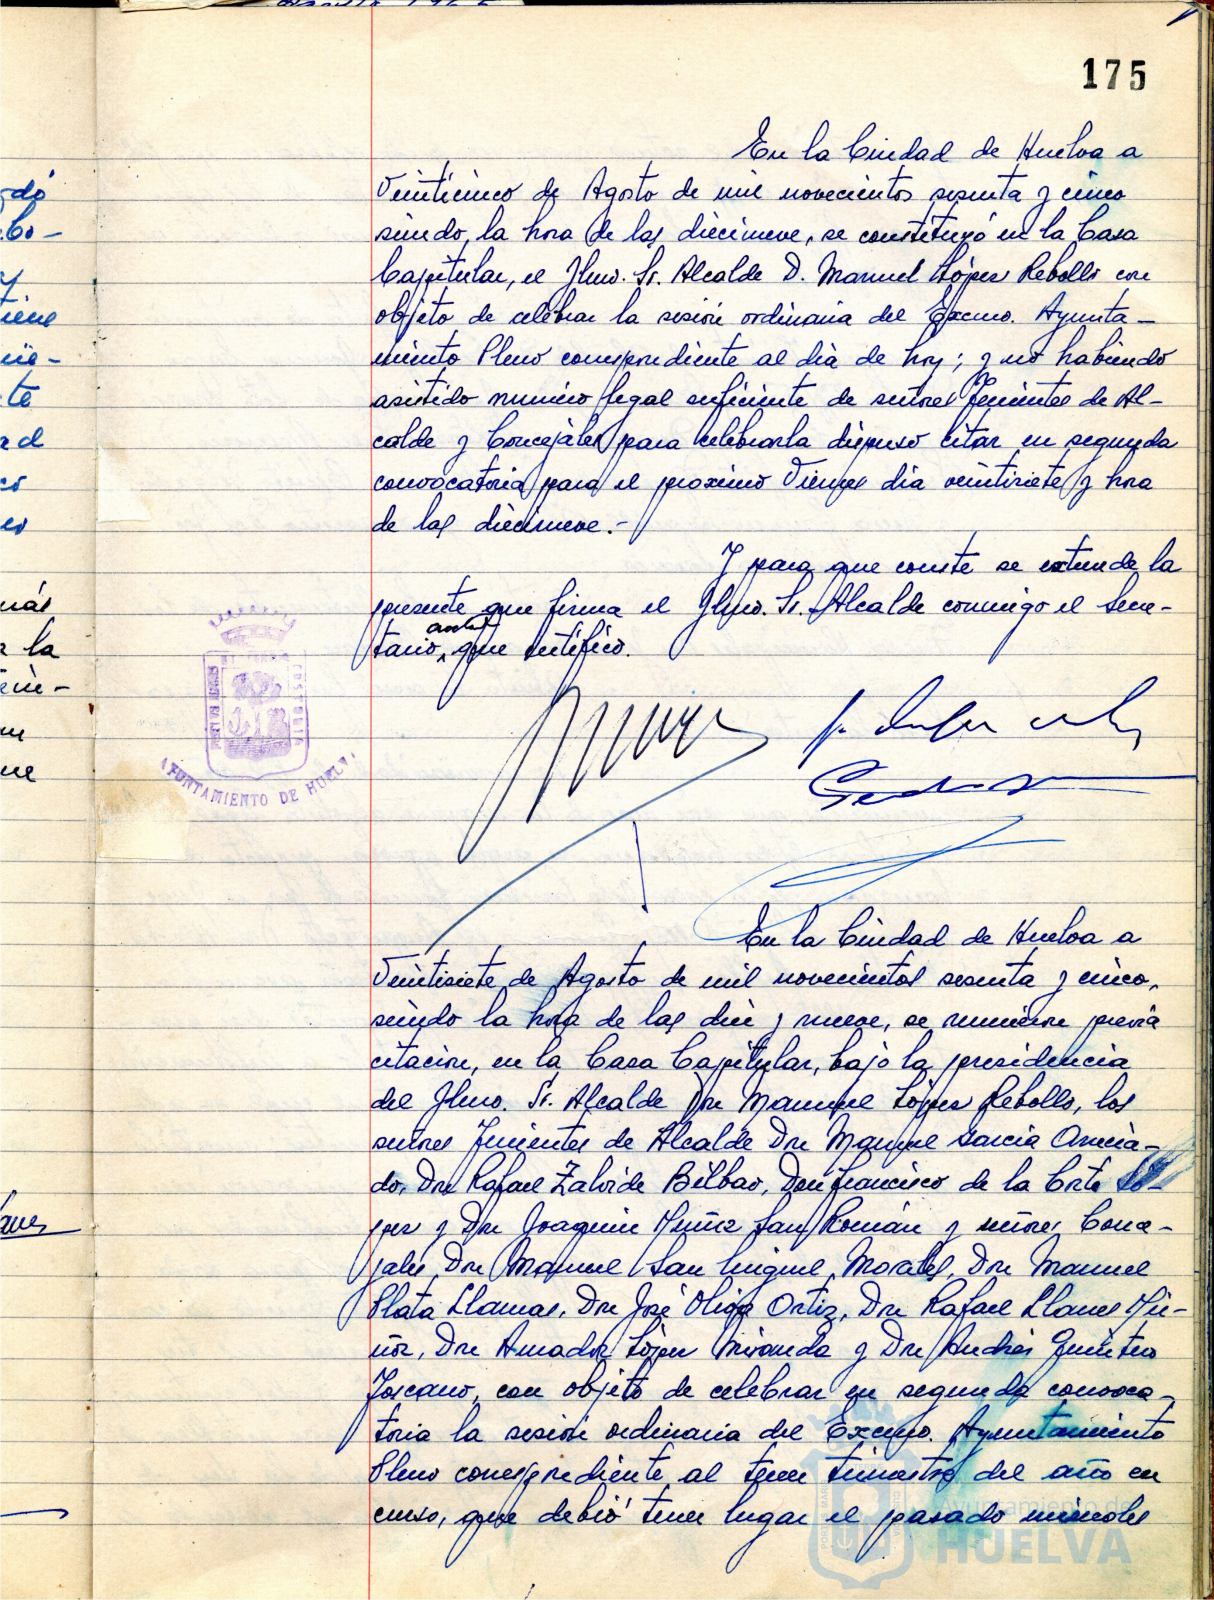 175
En la Ciudad de Huelva a
veinticinco de Agosto de mil novecientos sesenta y cinco
siendo, la hora de las diecinueve, se constituyó en la Casa
Capitular, el Ilmo. Sr. Alcalde D. Manuel López Rebollo con
objeto de celebrar la sesión ordinaria del Excmo. Ayunta-
miento Pleno correspondiente al día de hoy; y no habiendo
asistido número legal suficiente de señores Tenientes de Al-
calde y Concejales para celebrarla dispuso citar en segunda
convocatoria para el próximo Viernes día veintisiete y hora
de las diecinueve.-
Y para que conste se extiende la
presente que firma el Ilmo. Sr. Alcalde conmigo el Secre-
tario, que certifico.
AYUNTAMIENTO DE HUELVA
En la Ciudad de Huelva a
Veintisiete de Agosto de mil novecientos sesenta y cinco,
siendo la hora de las diez y nueve, se reunieron previa
citación, en la Casa Capitular, bajo la presidencia
del Ilmo. Sr. Alcalde Don Manuel López Rebollo, los
señores Tenientes de Alcalde Don Manuel García
do, Don Rafael Zalvide Bilbao, Don Francisco de la Corte Ló-
pez y Don Joaquín Muñiz San Román y señores Conce-
jales, Don Manuel San Miguel Morales, Don Manuel
Plata Llamas, Don José Oliva Ortiz, Don Rafael Llanes Mu-
ñoz, Don Amador López Miranda y Don Andrés Quintero
Toscano, con objeto de celebrar en segunda convoca-
toria la sesión ordinaria del Excmo. Ayuntamiento
Pleno correspondiente al tercer trimestre del año en
curso, que debió tener lugar el pasado miércoles
Ayuntamiento de
HUELVA